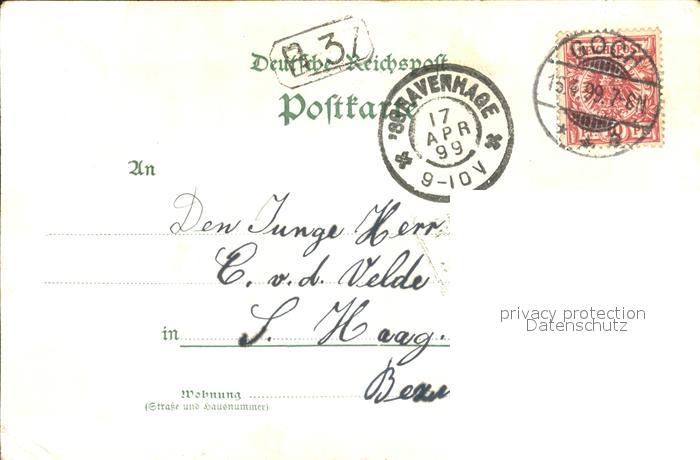 R 37
Deutsche Reichspost
Postkarte
'SGRAVENHAGE
17
APR
99
9-10V
GOCH
99.7-8N
REICHSPOST
An
Den Junge Herr
C. v. d. Velde
in S. Haag.
Wohnung
(Straße und Hausnummer)
privacy protection
Datenschutz